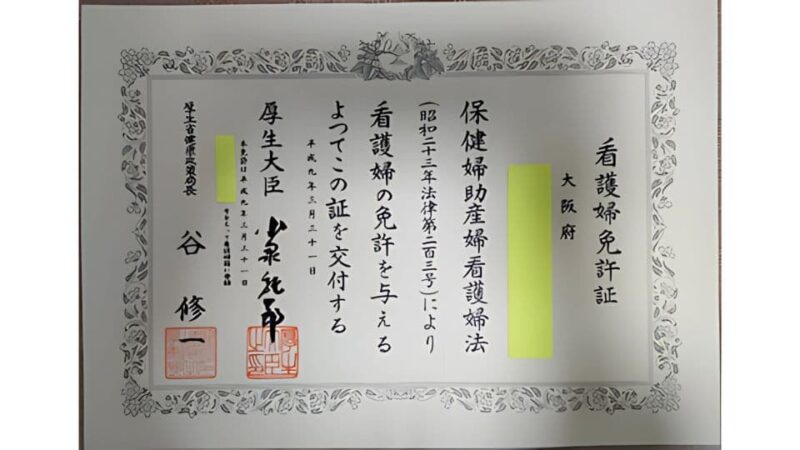 看護婦免許証
大阪府
保健婦助産婦看護婦法
(昭和二十三年法律第二百三号)により
看護婦の免許を与える
よつてこの証を交付する
平成九年三月三十一日
厚生大臣 小泉純一郎
本免許は平成九年三月三十一日
厚生省健康政策局長 谷 修一